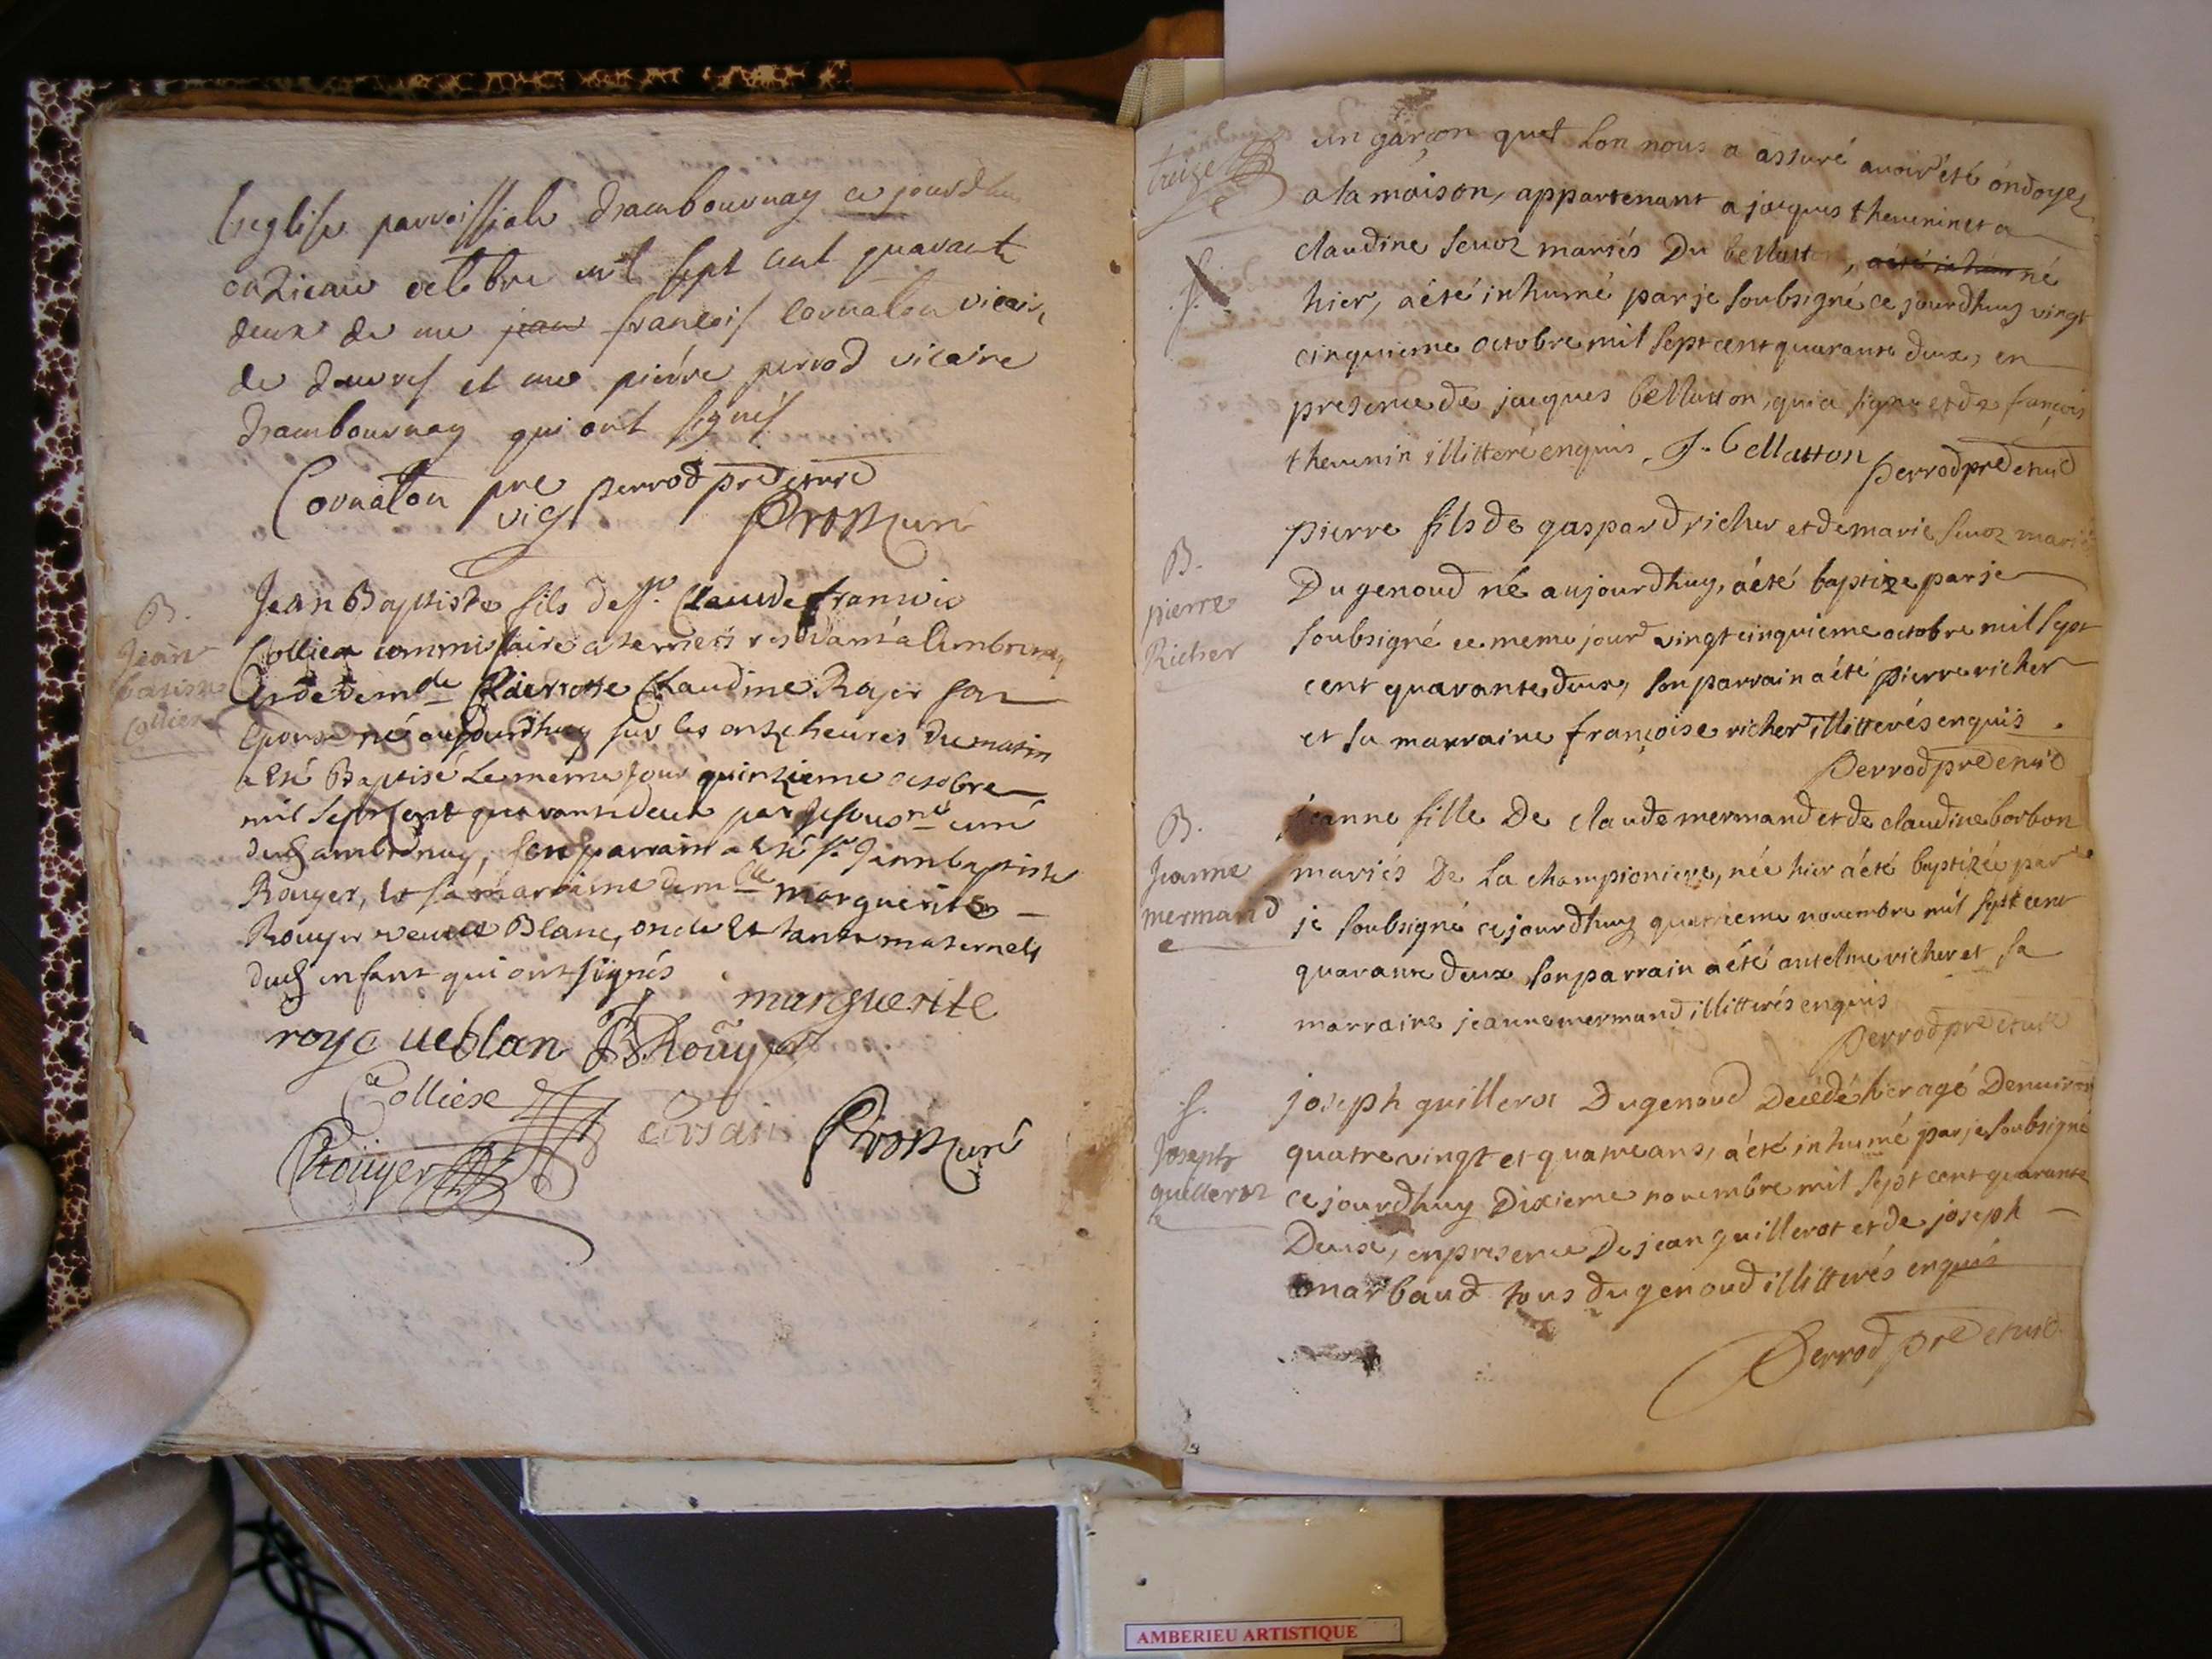 l'eglise parroissiale d'ambournay ce jourdhuy
onzieme octobre mil sept cent quarante
deux de me jean françois Cornaton vicaire
de douvres et me pierre perrod vicaire
d'ambournay qui ont signés
Cornaton pre vic perrod pre et vic
Pron curé
B.
Jean
batiste
Collier
Jean Baptiste fils de Sr. Claude francois
Collier commissaire a terriers residant a Ambournay
Et de dem.lle Pierrette Claudine Rojer son
Epouse né aujourdhuy sur les onze heures du matin
a Eté Baptisé le même jour quinzieme octobre
mil sept cent quarante deux par je sous.né curé
dud ambournay, son parrain a Eté Sr. Jean baptiste
Rouyer, Et sa marraine dem.lle marguerite
Rouyer veuve Blanc, oncle Et tante maternels
dud enfant qui ont signés
marguerite
roye ve blan JB. Roüyer
Collier
Roüyer Pron curé
treize
un garçon quel lon nous a assuré avoir été óndoyez
a la maison, appartenant a jacques thevenin et a
claudine sevoz mariés Du bellatton, a été inhum né
S.
hier, a été inhumé par je soubsigné ce jourdhuy vingt
cinquieme octobre mil sept cent quarante deux, en
presence de jacques bellatton, qui a signé et de françois
thevenin illitteré enquis, J. bellatton
perrod pre et vic
B.
pierre
Richer
pierre fils de gaspard richer et de marie sevoz mariés
Du genoud né aujourdhuy, a été baptize par je
soubsigné ce meme jour vingt cinquieme octobre mil sept
cent quarante deux, son parrain a été pierre richer
et sa marraine françoise richer illitterés enquis.
perrod pre et vic
B.
Jeanne
mermand
jeanne fille De claude mermand et de claudine borbon
mariés De la championiere, née hier a été baptizée par
je soubsigné ce jourdhuy quatrieme novembre mil sept cent
quarante deux son parrain a été antelme richer et sa
marraine jeanne mermand illitterés enquis
perrod pre et vic
S.
Joseph
guillerot
joseph guillerot Du genoud Decédé hier agé Denviron
quatre vingt et quatre ans, a été inhumé par je soubsigné
ce jourdhuy Dixieme novembre mil sept cent quarante
Deux, en presence De jean guillerot et de joseph
marbaud tous du genoud illitterés enquis
perrod pre et vic
AMBERIEU ARTISTIQUE